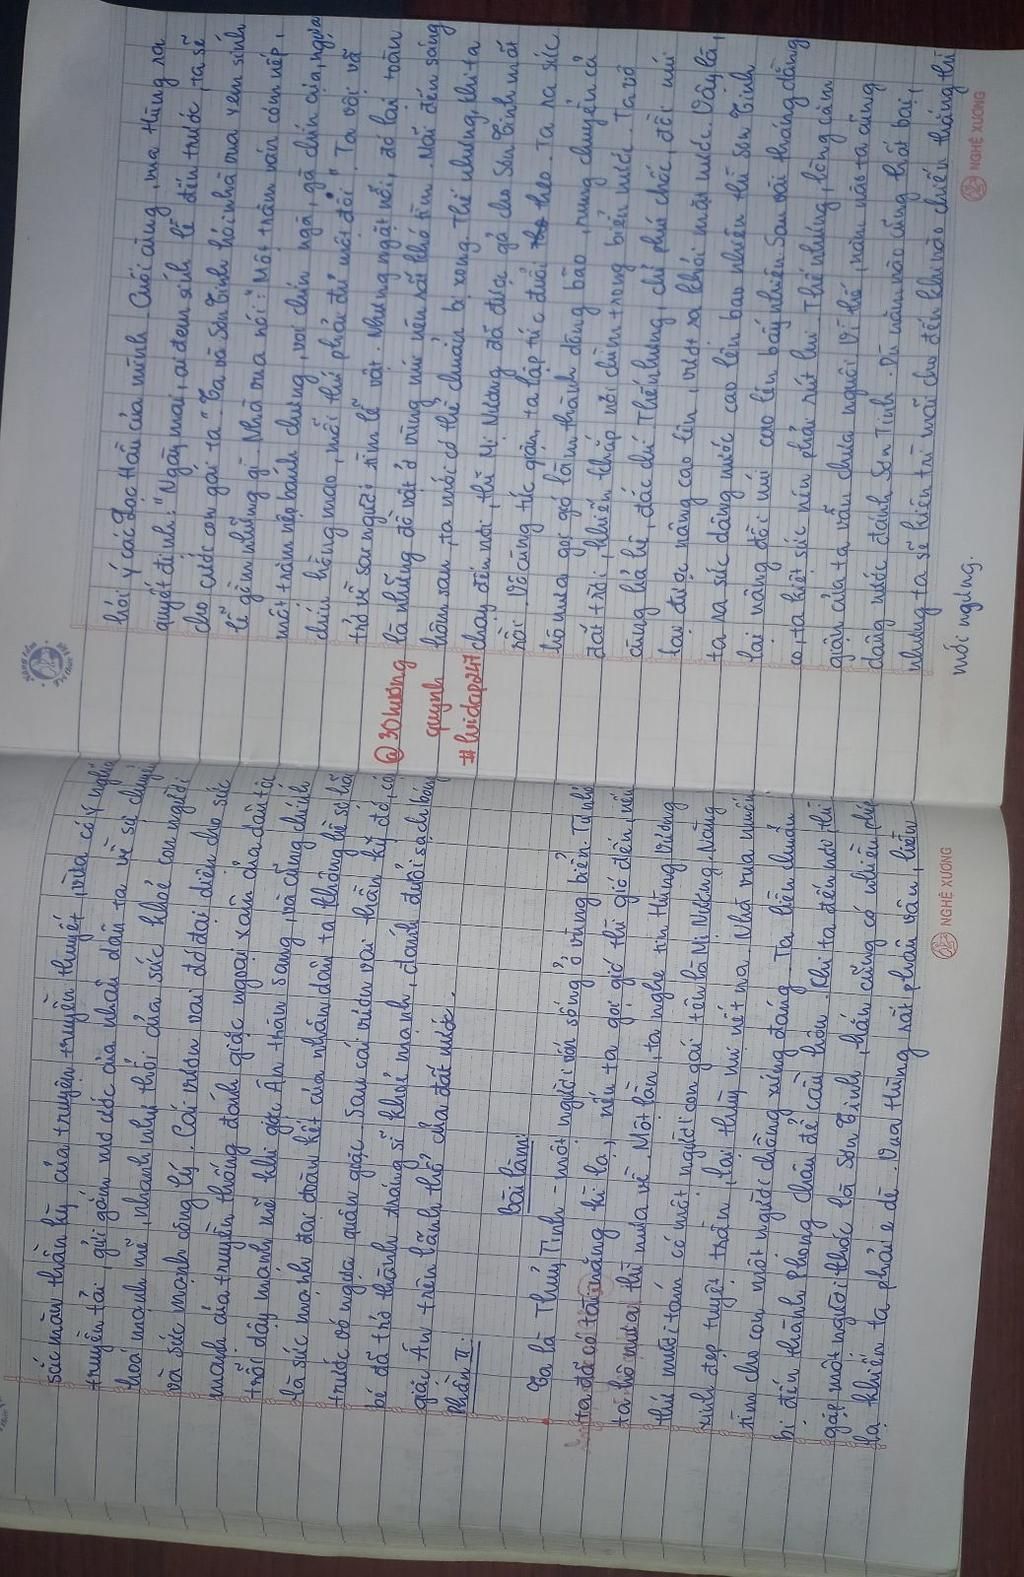 sắc màu thần kỳ của truyện truyền thuyết, vừa có ý nghĩa
truyền tải, gửi gắm mơ ước của nhân dân ta về sự chuyển
hoá mạnh mẽ, nhanh như thổi của sức khoẻ con người
và sức mạnh công lý. Cái vươn vai đó đại diện cho sức
mạnh của truyền thống đánh giặc ngoại xâm của dân tộc
trỗi dậy mạnh mẽ khi giặc Ân tràn sang, và cũng chính
là sức mạnh đại đoàn kết của nhân dân ta không hề sợ hãi
trước vó ngựa quân giặc. Sau cái vươn vai thần kỳ đó, cậu
bé đã trở thành tráng sĩ khoẻ mạnh, đánh đuổi sạch bóng
giặc Ân trên lãnh thổ cha đất nước.
Phần II:
Bài làm:
Ta là Thuỷ Tinh - một người vốn sống ở vùng biển. Từ nhỏ
ta đã có tài năng kì lạ, nếu ta gọi gió thì gió đến, nếu
ta hô mưa thì mưa về. Một lần, ta nghe tin Hùng Vương
thứ mười tám có một người con gái tên là Mị Nương. Nàng
xinh đẹp tuyệt trần, lại thuỳ mị nết na. Nhà vua muốn
tìm cho con một người chồng xứng đáng. Ta liền chuẩn
bị đến thành Phong châu để cầu hôn. Khi ta đến nơi thì
gặp một người khác là Sơn Tinh, hắn cũng có nhiều phép
lạ khiến ta phải e dè. Vua Hùng rất phân vân, liền
NGHỆ XƯƠNG
hỏi ý các Lạc Hầu của mình. Cuối cùng, vua Hùng ra
quyết định: "Ngày mai, ai đem sính lễ đến trước, ta sẽ
cho cưới con gái ta". Ta và Sơn Tinh hỏi nhà vua xem sính
lễ gồm những gì. Nhà vua nói: "Một trăm ván cơm nếp,
một trăm nệp bánh chưng, voi chín ngà, gà chín cựa, ngựa
chín hồng mao, mỗi thứ phải đủ một đôi". Ta vội vã
trở về sai người tìm lễ vật. Nhưng ngặt nỗi, đó lại toàn
là những đồ vật ở vùng núi nên rất khó tìm. Mãi đến sáng
hôm sau, ta mới có thể chuẩn bị xong. Thế nhưng, khi ta
chạy đến nơi, thì Mị Nương đã được gả cho Sơn Tinh mất
rồi. Vô cùng tức giận, ta lập tức đuổi theo. Ta ra sức
hô mưa gọi gió làm thành dông bão, rung chuyển cả
đất trời, khiến thấp nơi chìm trong biển nước. Ta vô
cùng hả hê, đắc chí. Thế nhưng, chỉ phút chốc, đồi núi
lại được nâng cao lên, vượt ra khỏi mặt nước. Vậy là,
ta ra sức dâng nước cao lên bao nhiêu thì Sơn Tinh
lại nâng đồi núi cao lên bấy nhiêu. Sau vài tháng dằng
co, ta kiệt sức nên phải rút lui. Thế nhưng, lòng căm
giận của ta vẫn chưa nguôi. Vì thế, năm nào ta cũng
dâng nước đánh Sơn Tinh. Dù năm nào cũng thất bại,
nhưng ta sẽ kiên trì mãi cho đến khi nào chiến thắng thì
mới ngừng.
@30hương
quynh
#hoidap247
NGHỆ XƯƠNG